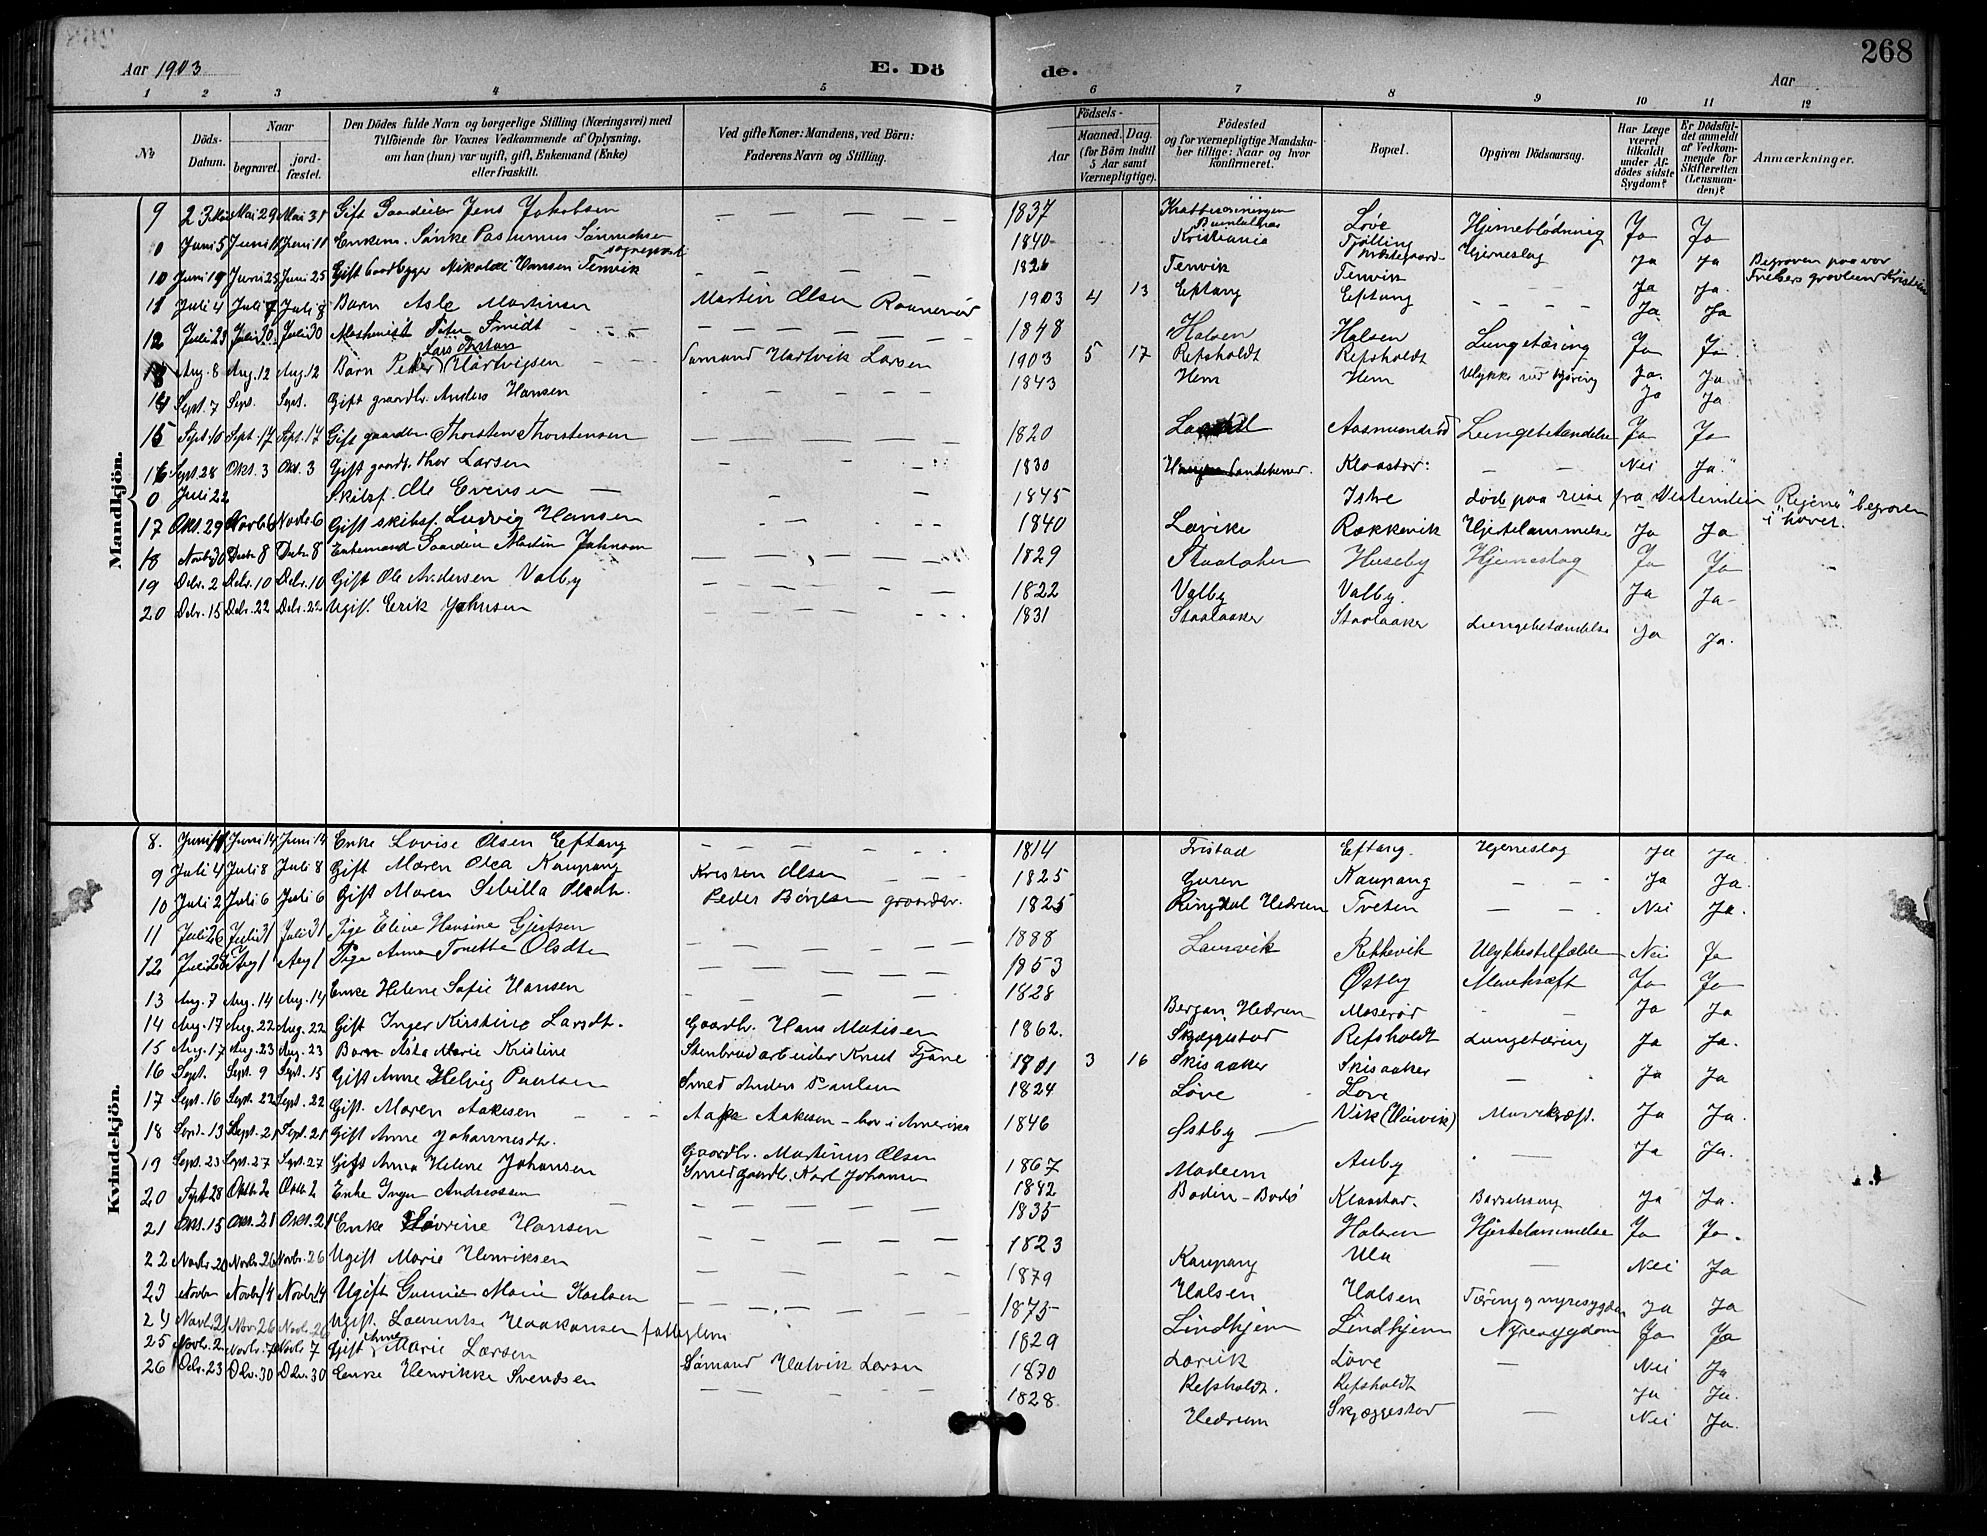 268
Aar 1903
E. Dö
de.
Aar
1 2 3 4 5 6 7 8 9 10 11 12
No
Döds-Datum.
Naar
begravet.
jordfæstet.
Den Dödes fulde Navn og borgerlige Stilling (Næringsvei) med Tilföiende for Voxnes Vedkommende af Oplysning, om han (hun) var ugift, gift, Enkemand (Enke) eller fraskilt.
Ved gifte Koner: Mandens, ved Börn: Faderens Navn og Stilling.
Födsels-
Aar
Maaned. Dag.
(for Börn indtil 5 Aar samt Værnepligtige).
Födested og for værnepligtige Mandskaber tillige: Naar og hvor konfirmeret.
Bopæl.
Opgiven Dödsaarsag.
Har Læge været tilkaldt under Afdödes sidste Sygdom?
Er Dödsfaldet anmeldt af Vedkommende for Skifteretten (Lensmanden)?
Anmærkninger.
Mandkjön.
9 23 Mai Mai 29 Mai 31 Gift Gaardeier Jens Jakobsen 1837 Løve Hjerneblödning Ja Ja
0 Juni 5 Juni 11 Juni 11 Enkem. Sønke Rasmus Sönnichsen sogneprest 1840 Kristiania Tjølling Prestegaard Hjerneslag Ja Ja Begraven paa vor Frelsers gravlund Kristiania
10 Juni 19 Juni 25 Juni 25 Gift Gaardbryger Nikolai Hansen Tenvik 1826 Tenvik Tenvik Ja Ja
11 Juli 4 Juli 7 Juli 8 Barn Asle Martinsen Martin Olsen Raanerød 1903 4 13 Eftang Eftang Ja Ja
12 Juli 23 Juli 30 Juli 30 Maskinist Peter Smidt 1848 Halsen Halsen Lungetæring Ja Ja
13 Aug. 8 Aug. 12 Aug. 12 Barn Peder Lars Anton Hartvigsen Sømand Hartvik Larsen 1903 5 17 Refsholdt Refsholdt Ja Ja
14 Sept. 7 Sept. Sept. Gift gaardbr. Anders Hansen 1843 Hem Hem Ulykke ved kjøring Ja Ja
15 Sept. 10 Sept. 17 Sept. 17 Gift gaardbr Thorsten Thorstensen 1820 Aasmundrød Lungebetændelse Ja Ja
16 Sept. 28 Okt. 3 Okt. 3 Gift gaardbr. Thor Larsen 1830 Sandekener. Klaastad: Nei Ja
0 Juli 22 Skibsf. Ole Evensen 1845 Istre død paa reise fra Vestindien "Regina" begraven i havet.
17 Okt. 29 Novbr 6 Novbr 6 Gift skibsf. Ludvig Hansen 1840 Larvik Rækkevik Hjertelammelse Ja Ja
18 Novbr 30 Decbr 8 Decbr 8 Enkemand Gaardm Martin Johnsen 1829 Staalaker Huseby Hjerneslag Ja Ja
19 Debr. 2 Debr. 10 Debr. 10 Gift Ole Andersen Valby 1822 Valby Valby. Ja Ja
20 Debr. 15 Debr. 22 Debr. 22 Ugift. Erik Johnsen 1831 Staalaaker Staalaaker Lungebetændelse Ja Ja.
Kvindekjön.
8. Juni 11 Juni 14 Juni 14 Enke Lovise Olsen Eftang 1814 Fristad Eftang. Hjerneslag Ja Ja
9 Juli 4 Juli 8 Juli 8 Gift Maren Olea Kaupang Kristen Olsen 1825 Guren Kaupang Ja Ja.
10 Juli 2 Juli 6 Juli 6 Gift Maren Sibilla Olsdtr. Peder Børjesen gaardbr. 1825 Ringdal Hedrum Tveten Nei Ja.
11 Juli 26 Juli 31 Juli 31 Pige Eline Hansine Gjertsen 1888 Laurvik Rekkevik Ulykkestilfælde Nei Ja
12 Juli 28 Aug 1 Aug 1 Pige Anna Tonette Olsdtr 1853 Østby Mavekræft Ja Ja
13 Aug. 7 Aug. 14 Aug. 14 Enke Helene Sofie Hansen 1828 Bergan, Hedrum Moserød Ja Ja
14 Aug. 17 Aug. 22 Aug. 22 Gift Inger Kirstine Larsdt. Gaardbr. Hans Matisen 1862. Skjæggestad Refsholdt Lungetæring Ja Ja.
15 Aug. 17 Aug. 23 Aug. 23 Barn Asta Marie Kristine Stenbrudarbeider Knut Tjøne 1901 3 16 Skisaaker Skisaaker Ja Ja
16 Sept. Sept. 9 Sept. 15 Gift Anne Helvig Paulsen Smed Anders Paulsen 1824 Løve Løve
17 Sept. 16 Sept. 22 Sept. 22 Gift. Maren Aakesen Aake Aakesen – bor i Amerika 1846 Østby Vik (Heivik) Mavekræft. Ja Ja.
18 Sept. 13 Sept. 21 Sept. 21 Gift Anne Johannesdtr. Gaardbr. Martinus Olsen 1867 Auby Ja Ja.
19 Sept. 23 Sept. 27 Sept. 27 Gift Anna Helene Johansen Smed gaardbr. Karl Johansen 1842 Bodin – Bodö Klaastad. Barselseng Ja Ja.
20 Sept 28 Oktb. 2 Oktb. 2 Enke Inger Andreassen 1835 Halsen Hjertelammelse Ja Ja.
21 Okt. 15 Okt. 21 Okt. 21 Enke Severine Hansen 1823 Kaupang Ula Nei Ja
22 Novbr. 20 Novbr. 26 Novbr. 26 Ugift Marie Henriksen 1879 Halsen Halsen Tæring og nyresygdom Ja Ja
23 Novbr Novbr 14 Novbr. 14 Ugift Gunnie Marie Karlsen 1875 Lindhjem Lindhjem Nyresygdom Ja Ja
24 Novbr. 21 Nov. 26 Novbr. 26 Ugift. Laurentse Haakonsen fattiglem 1829 Larvik Løve Nei Ja
25 Novbr. 2 Novbr. 7 Novbr. 7 Gift Anne Marie Larsen Sömand Halvik Larsen 1870 Refsholdt. Refsholdt Ja Ja.
26 Debr. 23 Dbr. 30 Dbr. 30 Enke Henrikke Svendsen 1828 Hedrum Skjæggestad Nei Ja.